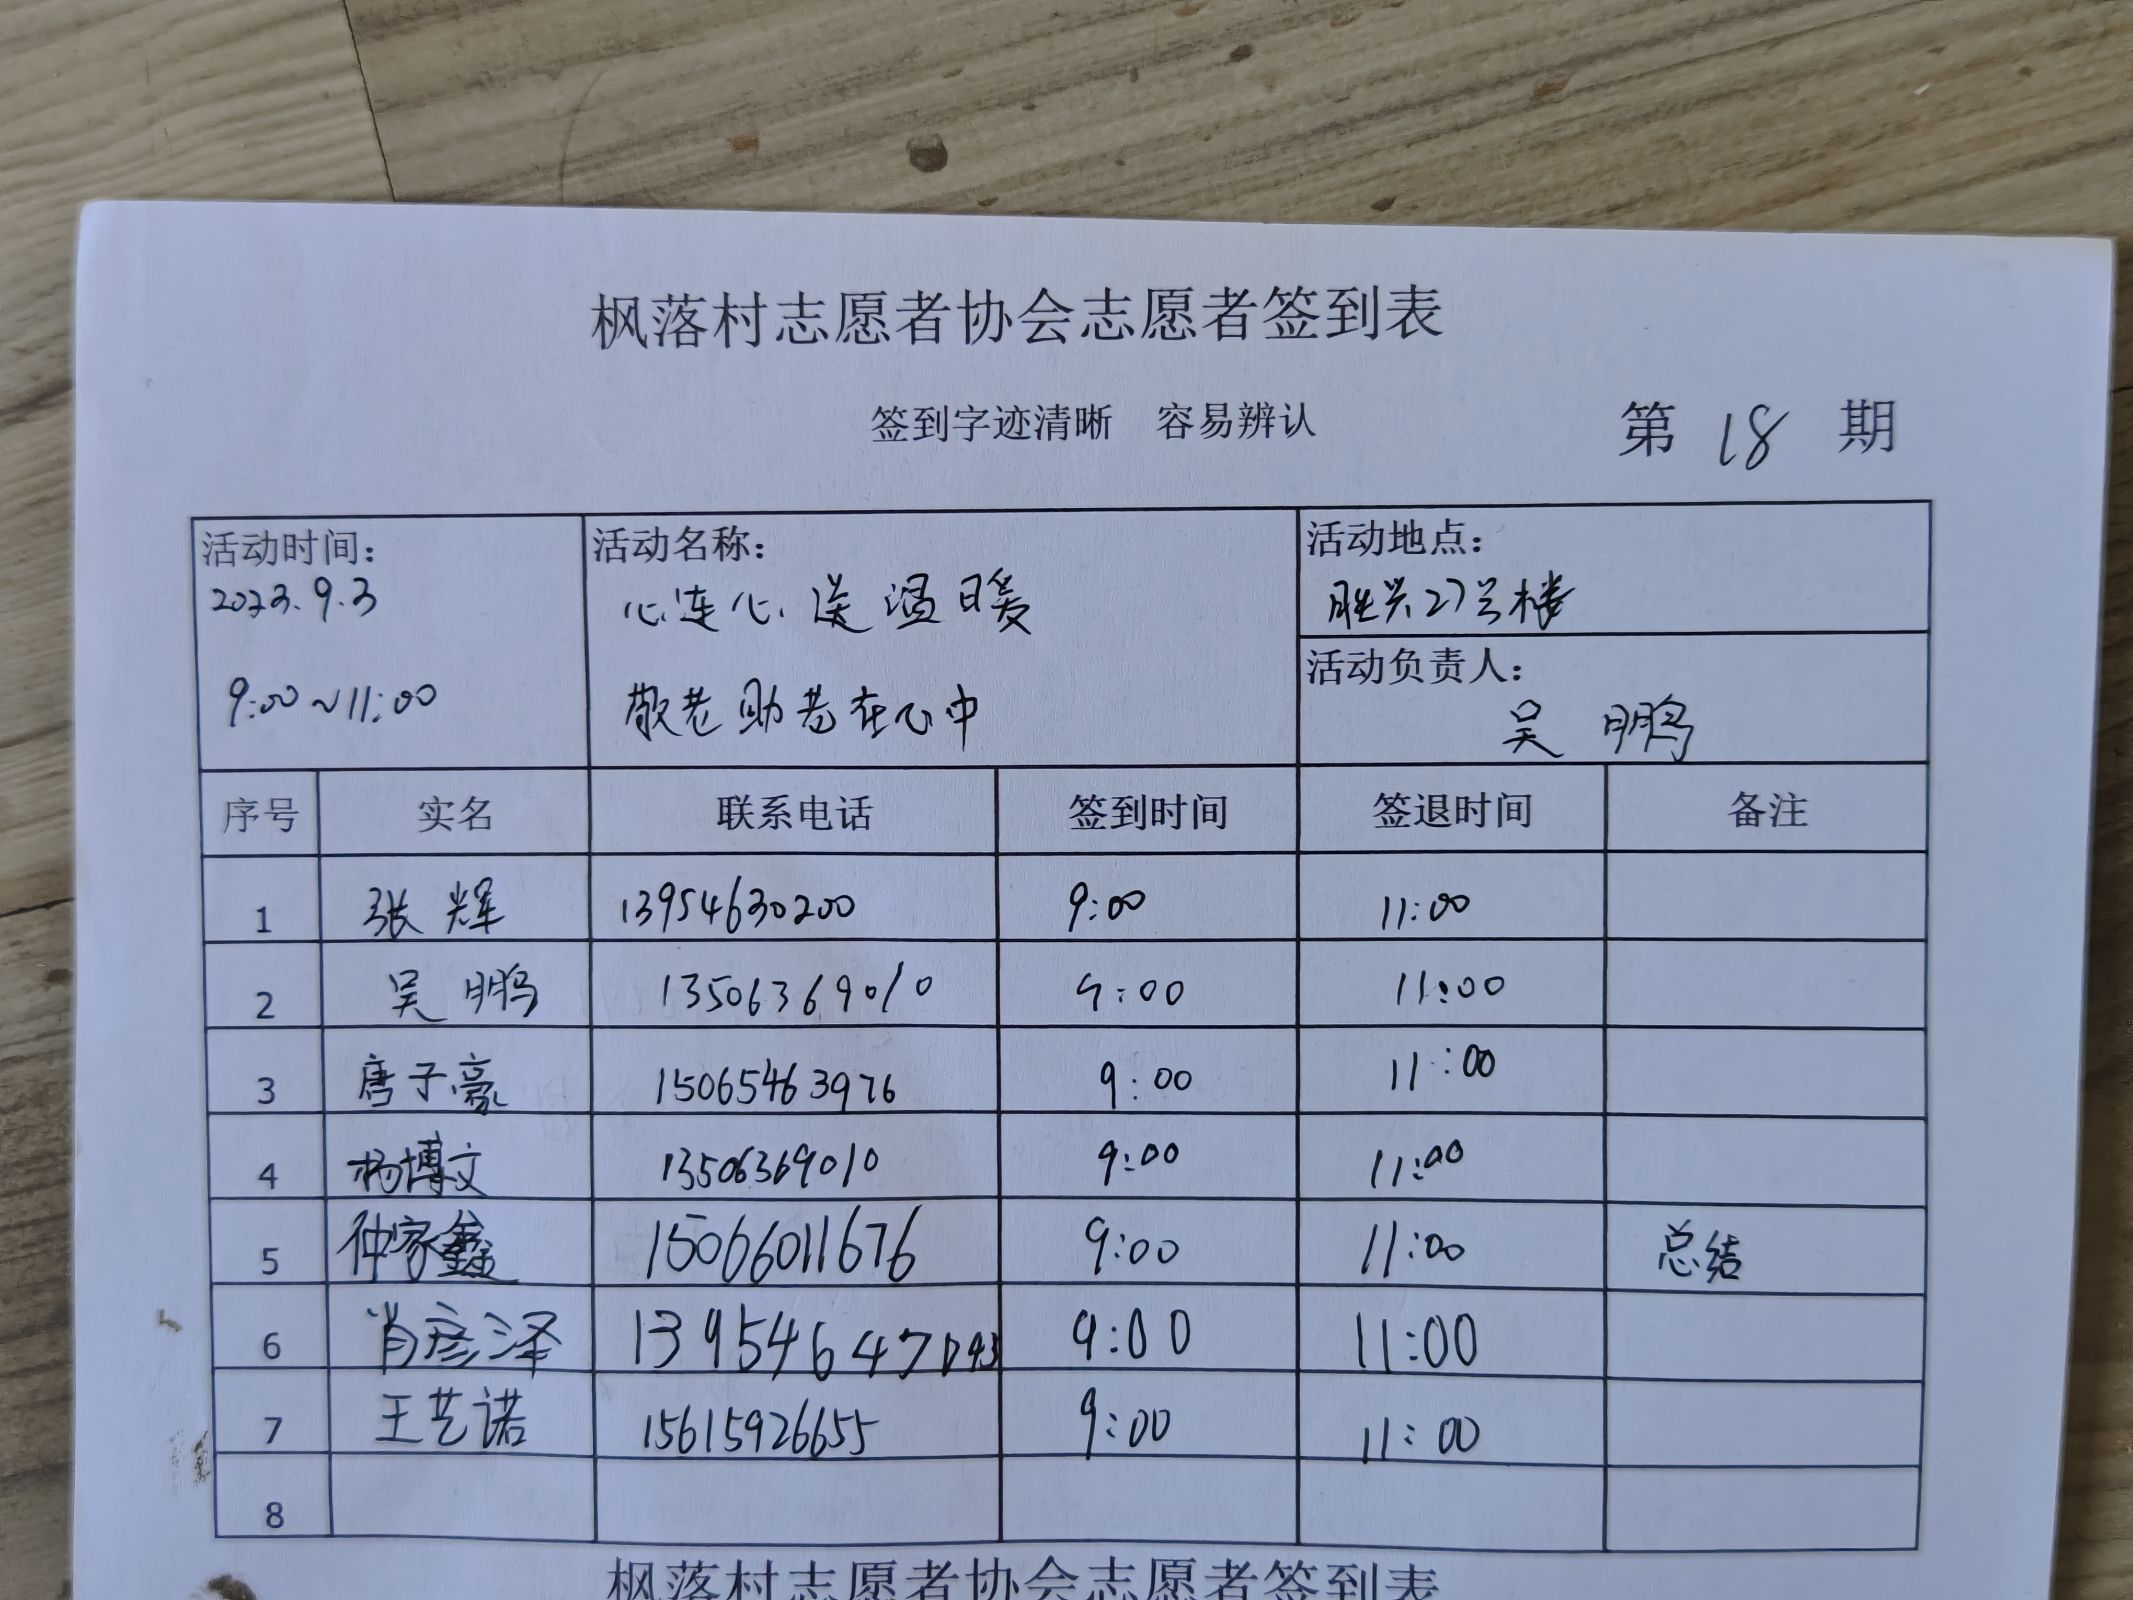 枫落村志愿者协会志愿者签到表
签到字迹清晰 容易辨认 第 18 期
活动时间: 活动名称: 活动地点:
2023.9.3 心连心送温暖 胜兴27号楼
活动负责人:
9:00~11:00 敬老助老在心中 吴鹏
序号 实名 联系电话 签到时间 签退时间 备注
1 张辉 13954630200 9:00 11:00
2 吴鹏 13506369010 9:00 11:00
3 唐子豪 15065463976 9:00 11:00
4 杨博文 13506369010 9:00 11:00
5 仲家鑫 15066011676 9:00 11:00 总结
6 肖彦泽 9:00 11:00
7 王艺诺 15615926655 9:00 11:00
8
枫落村志愿者协会志愿者签到表